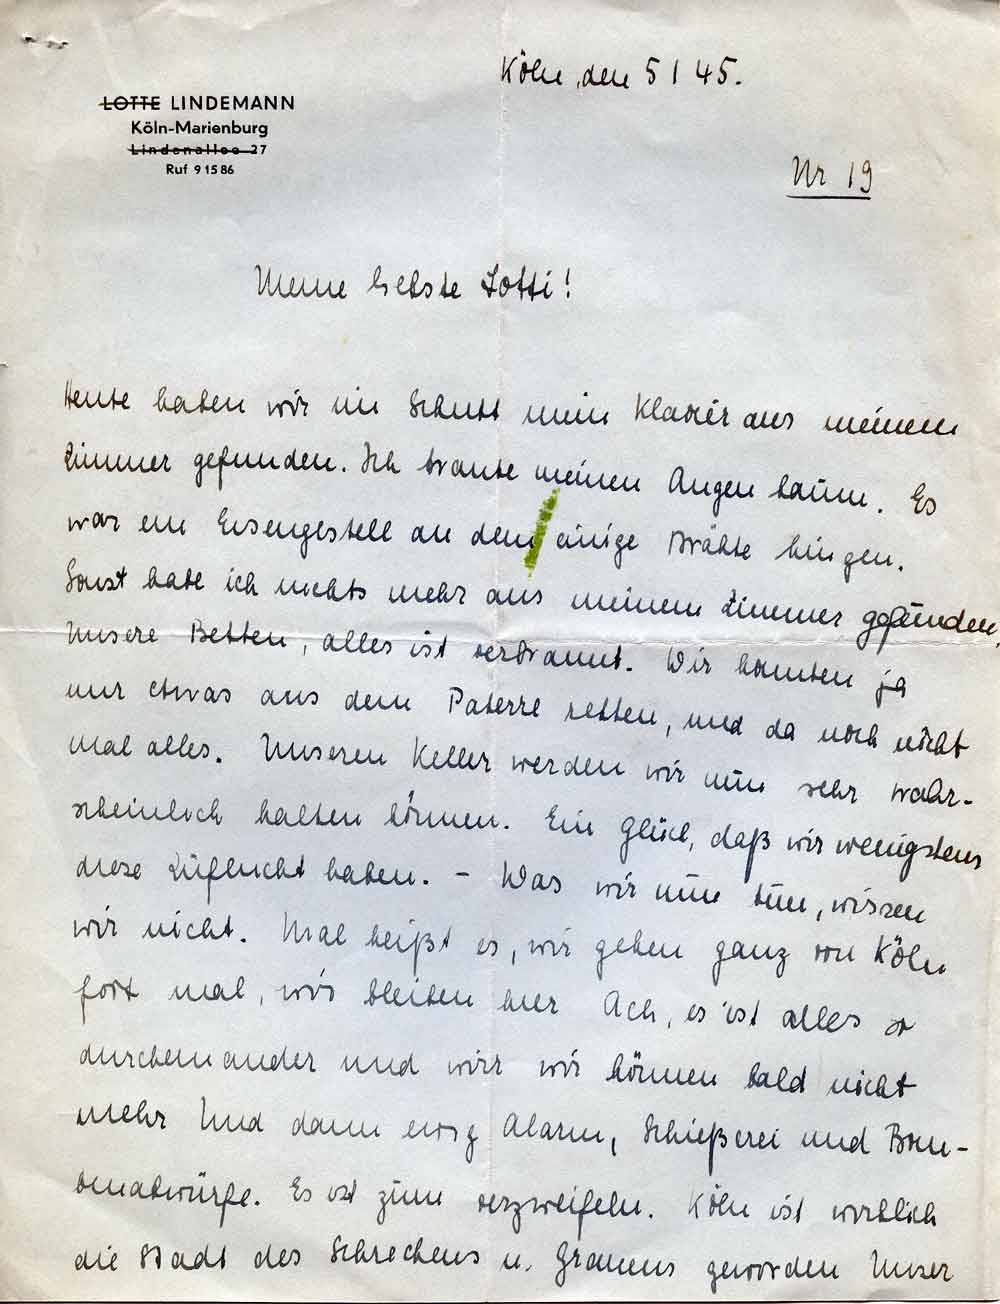 Köln, den 5 I 45.
LOTTE LINDEMANN
Köln-Marienburg
Lindenallee 27
Ruf 9 15 86
Nr 19
Meine liebste Lotti!
Heute haben wir im Schutt mein Klavier aus meinem
Zimmer gefunden. Ich traute meinen Augen kaum. Es
war ein Eisengestell an dem einige Drähte hingen.
Sonst habe ich nichts mehr aus meinem Zimmer gefunden,
Unsere Betten, alles ist verbrannt. Wir konnten ja
nur etwas aus dem Paterre retten, und da noch nicht
mal alles. Unseren Keller werden wir nun sehr wahr-
scheinlich halten können. Ein Glück, daß wir wenigstens
diese Zuflucht haben. - Was wir nun tun, wissen
wir nicht. Mal heißt es, wir gehen ganz von Köln
fort mal, wir bleiben hier Ach, es ist alles so
durcheinander und wirr wir können bald nicht
mehr Und dann ewig Alarm, Schießerei und Bom-
benabwürfe. Es ist zum verzweifeln. Köln ist wirklich
die Stadt des Schreckens u. Grauens geworden Unser